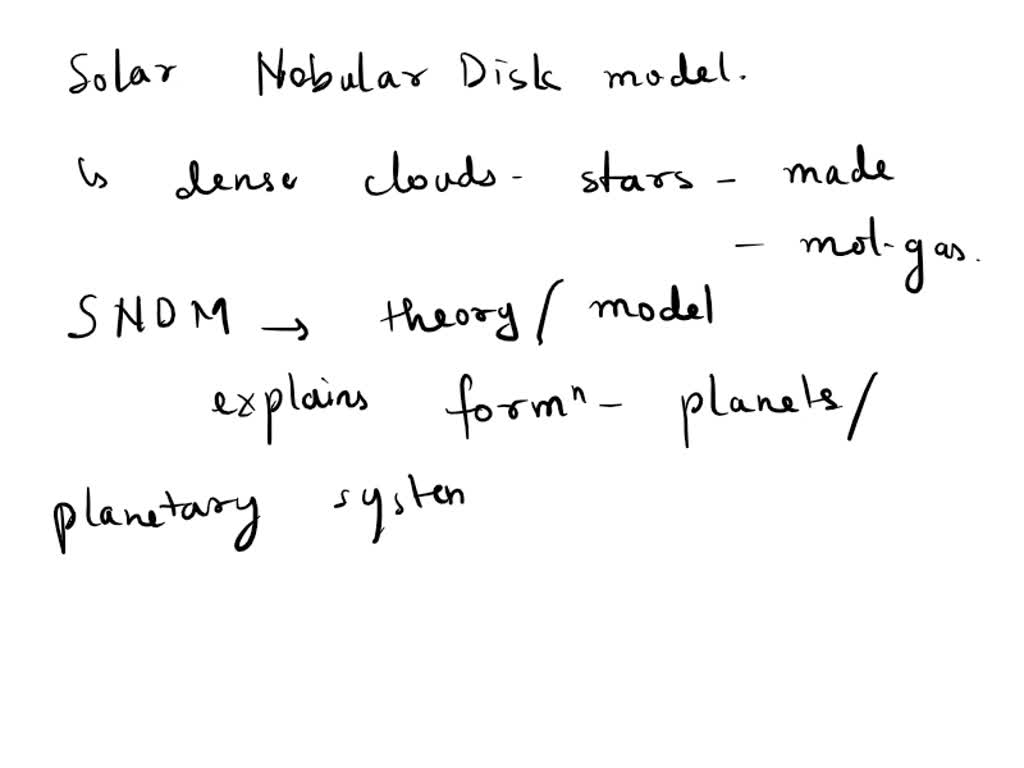 Solar Nobular Disk model.
↳ dense clouds - stars - made
- mol-gas.
SNDM → theory/model
explains formⁿ - planets/
planetary system